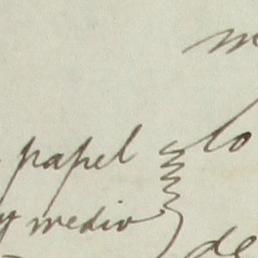 papel lo
y medio de